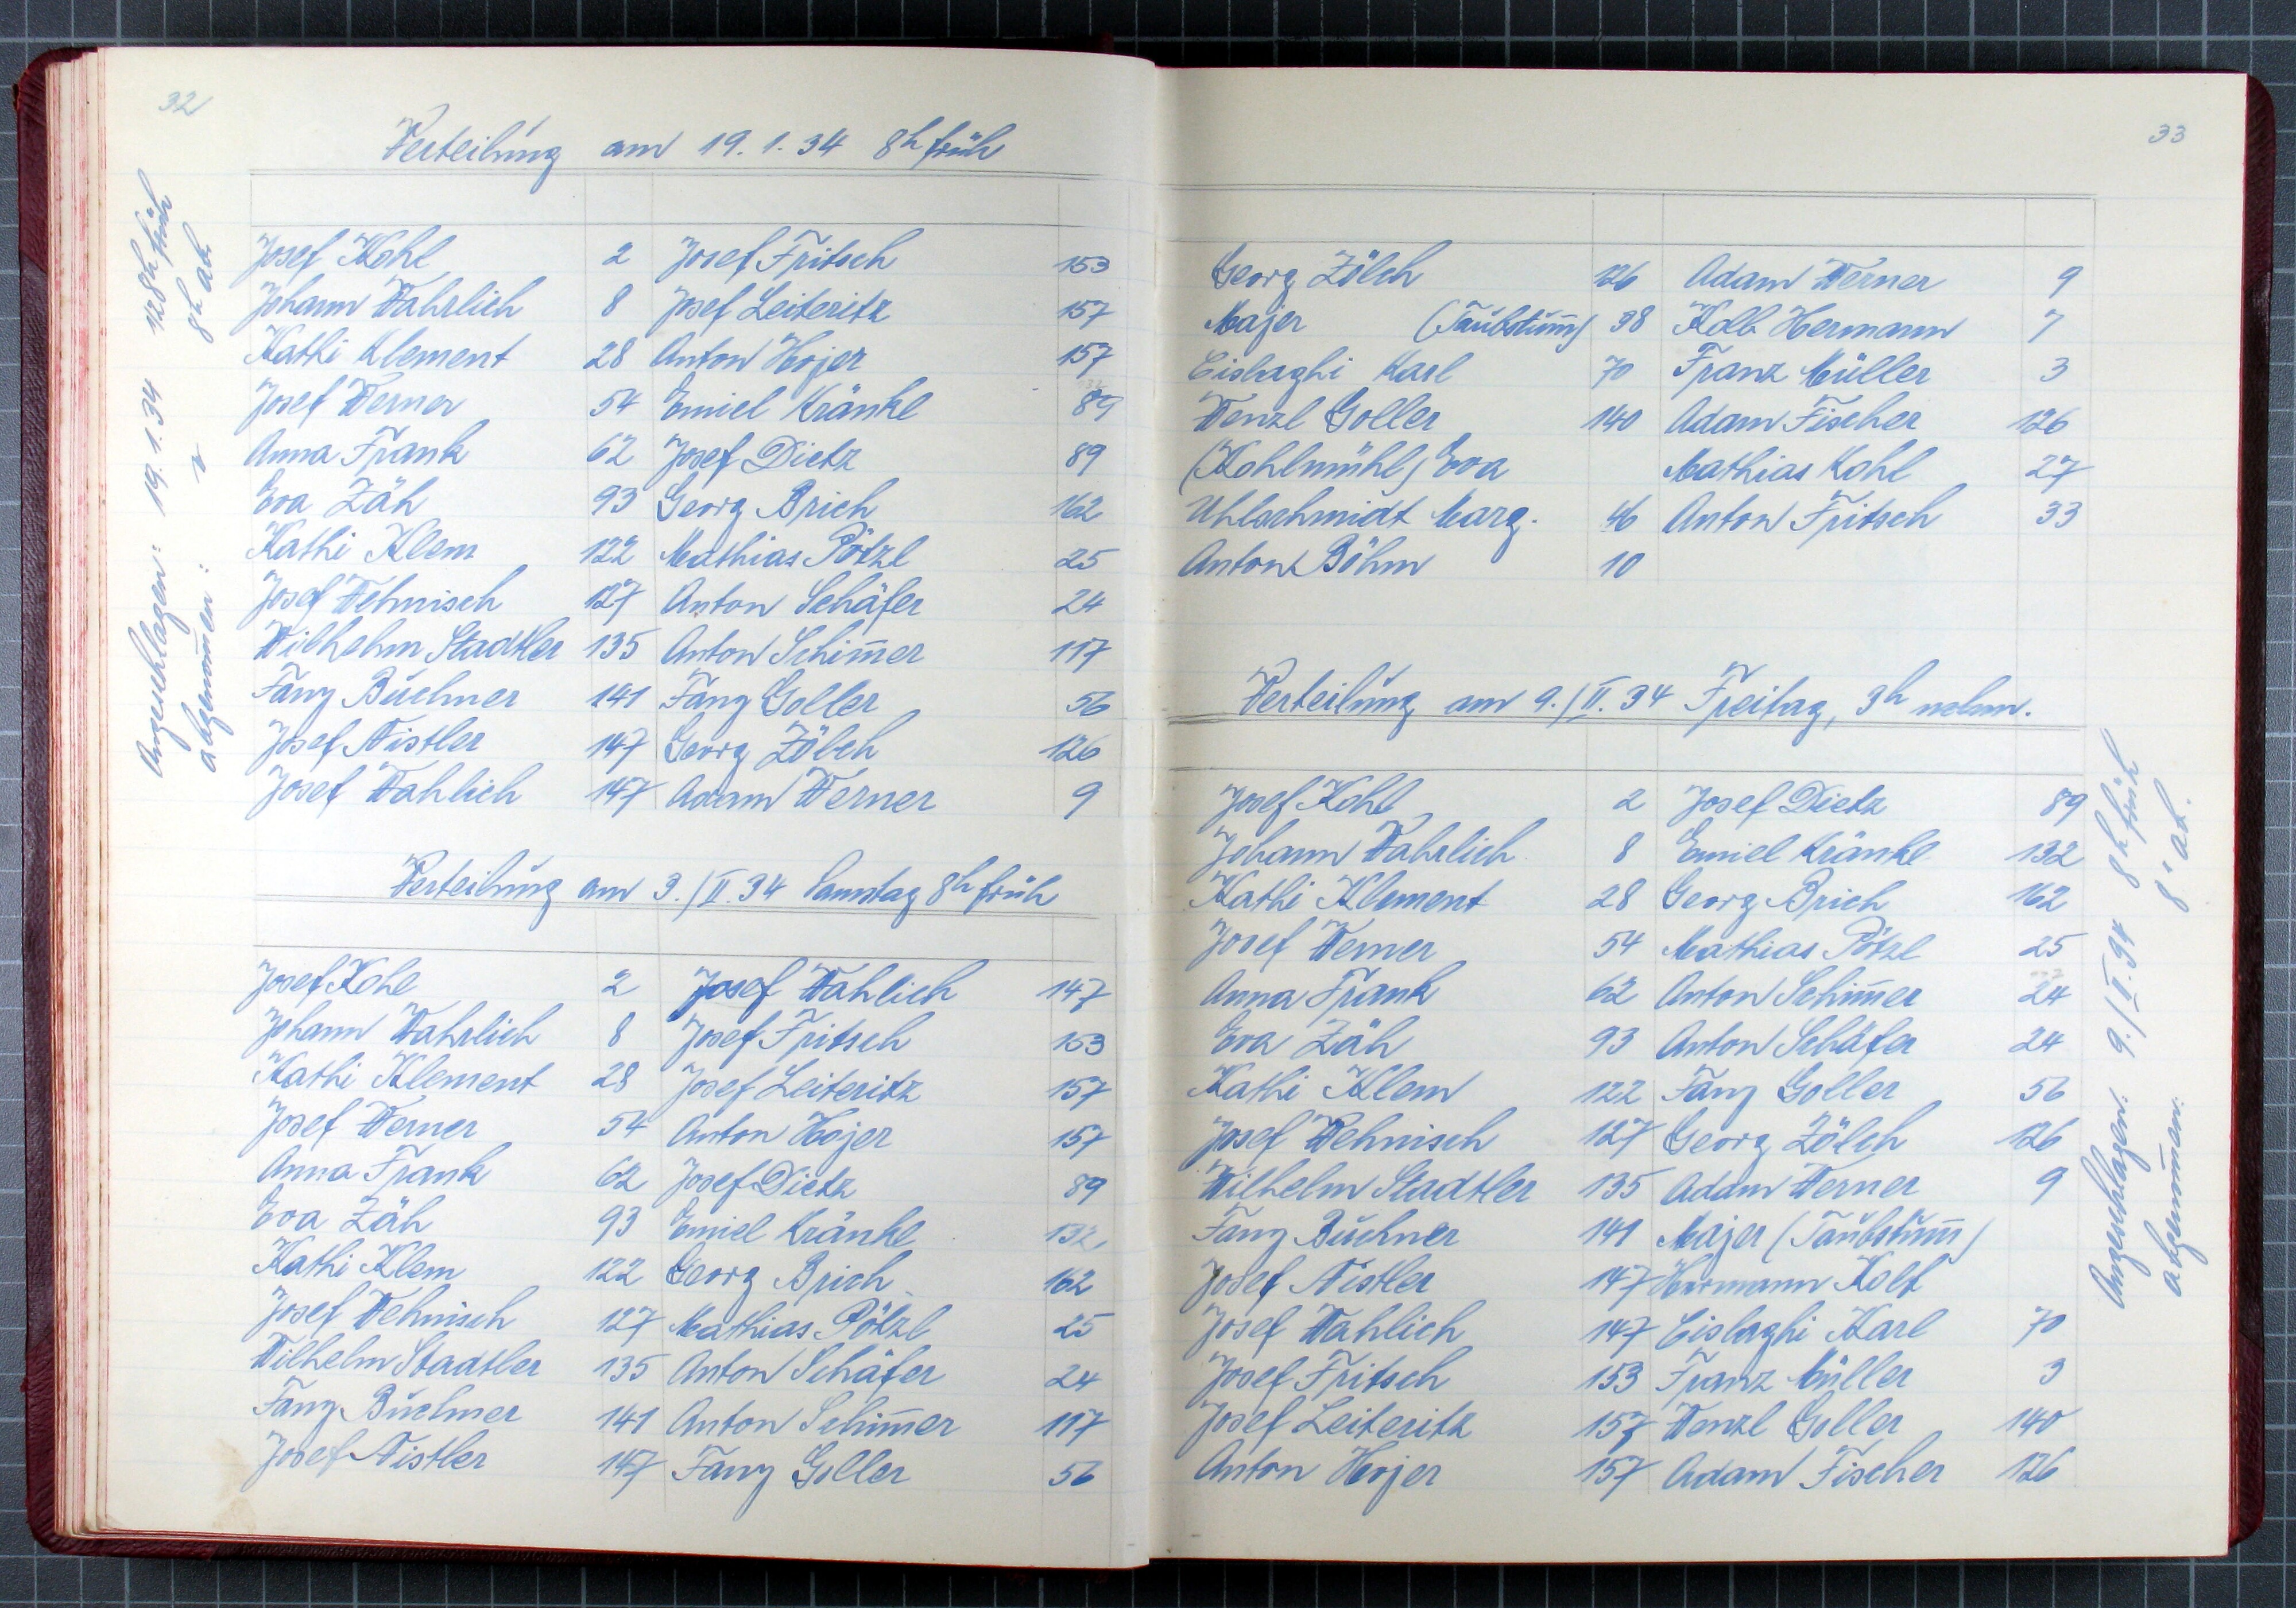 32
Verteilung am 19. 1. 34 8h früh
Josef Kohl 2 Josef Fritsch 153
Johann Wahrlich 8 Josef Leiteritz 157
Kathi Klement 28 Anton Hojer 157
Josef Werner 54 Emiel Kränkl 89
Anna Frank 62 Josef Dietz 89
Eva Zäh 93 Georg Brich 162
Kathi Klem 122 Mathias Pötzl 25
Josef Wehnisch 127 Anton Schäfer 24
Wilhelm Stadtler 135 Anton Schim̄er 117
Fany Büchner 141 Fany Goller 56
Josef Nistler 147 Georg Zölch 126
Josef Wahlich 147 Adam Werner 9
Angeschlagen: 19. 1. 34 8h früh
abgenom̄en: 8h ab.
Verteilung am 3./II. 34 Samstag 8h früh
Josef Kohl 2 Josef Wahlich 147
Johann Wahrlich 8 Josef Fritsch 153
Kathi Klement 28 Josef Leiteritz 157
Josef Werner 54 Anton Hojer 157
Anna Frank 62 Josef Dietz 89
Eva Zäh 93 Emiel Kränkl 132
Kathi Klem 122 Georg Brich 162
Josef Wehnisch 127 Mathias Pötzl 25
Wilhelm Stadtler 135 Anton Schäfer 24
Fany Büchner 141 Anton Schim̄er 117
Josef Nistler 147 Fany Goller 56
33
Georg Zölch 126 Adam Werner 9
Majer (Taubstum̄) 38 Kolb Hermann 7
Cislaghi Karl 70 Franz Müller 3
Wenzl Goller 140 Adam Fischer 126
(Kohlmühl) Eva Mathias Kohl 27
Uhlschmidt Marg. 46 Anton Fritsch 33
Anton Böhm 10
Verteilung am 9./II. 34 Freitag, 3h nchm.
Josef Kohl 2 Josef Dietz 89
Johann Wahrlich 8 Emiel Kränkl 132
Kathi Klement 28 Georg Brich 162
Josef Werner 54 Mathias Pötzl 25
Anna Frank 62 Anton Schim̄er 24
Eva Zäh 93 Anton Schäfer 24
Kathi Klem 122 Fany Goller 56
Josef Wehnisch 127 Georg Zölch 126
Wilhelm Stadtler 135 Adam Werner 9
Fany Büchner 141 Majer (Taubstum̄)
Josef Nistler 147 Hermann Kolb
Josef Wahlich 147 Cislaghi Karl 70
Josef Fritsch 153 Franz Müller 3
Josef Leiteritz 157 Wenzl Goller 140
Anton Hojer 157 Adam Fischer 126
Angeschlagen: 9./II. 34 8h früh
abgenom̄en: 8h ab.